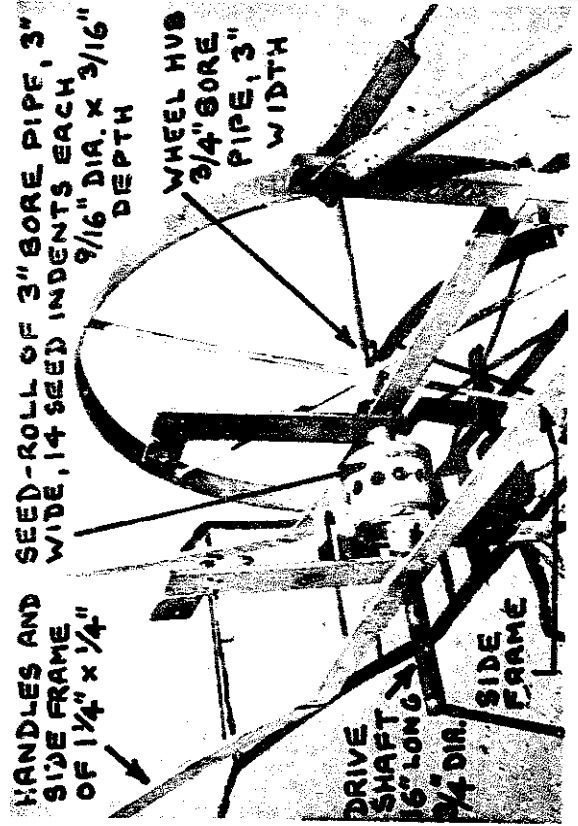 HANDLES AND
SIDE FRAME
OF 1 1/4" x 1/4"
SEED-ROLL OF 3" BORE PIPE, 3"
WIDE, 14 SEED INDENTS EACH
9/16" DIA. x 3/16"
DEPTH
WHEEL HUB
3/4" BORE
PIPE, 3"
WIDTH
DRIVE
SHAFT
16" LONG
3/4 DIA.
SIDE
FRAME